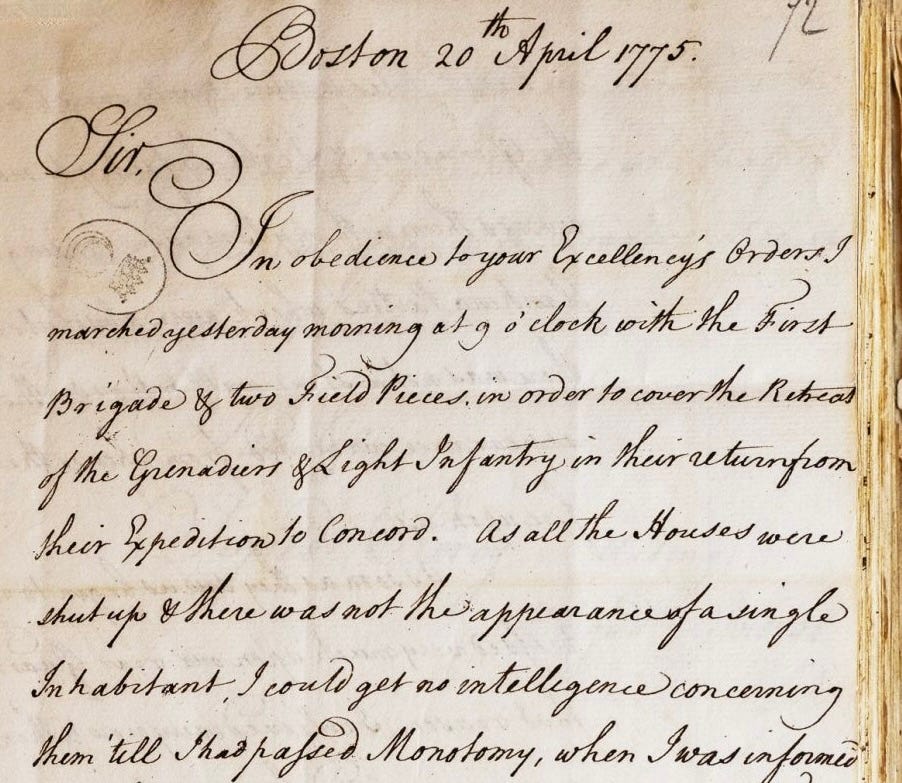 72
Boston 20th April 1775.
Sir,
In obedience to your Excellency's Orders I
marched yesterday morning at 9 o'clock with the First
Brigade & two Field Pieces, in order to cover the Retreat
of the Grenadiers & Light Infantry in their return from
their Expedition to Concord. As all the Houses were
shut up & there was not the appearance of a single
Inhabitant, I could get no intelligence concerning
them 'till I had passed Monotomy, when I was informed